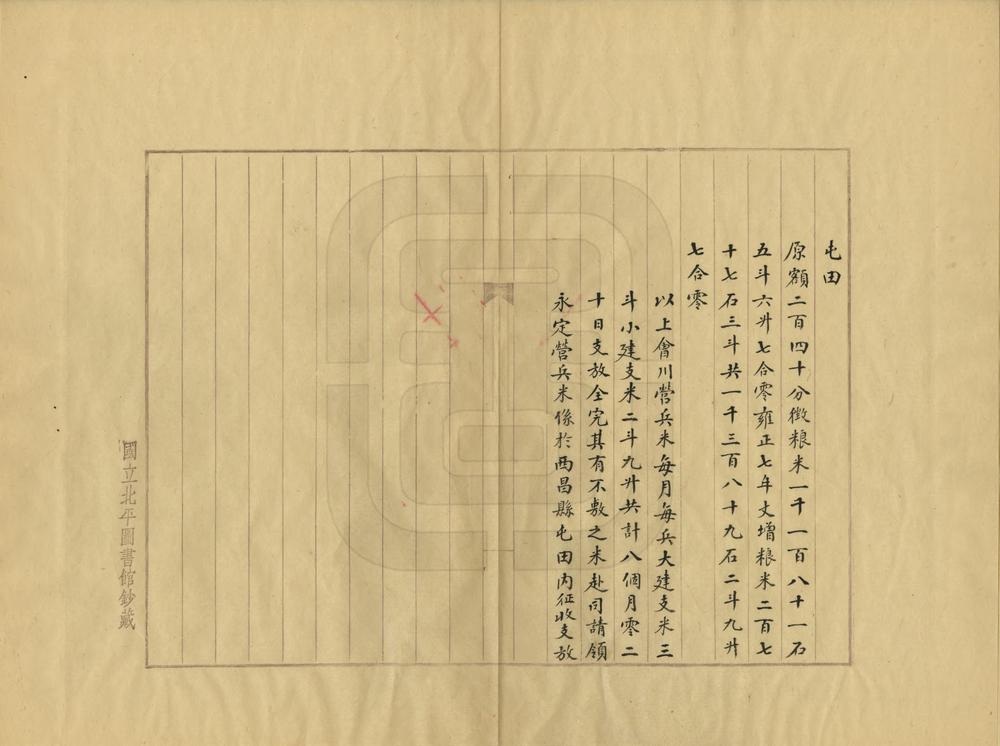 屯田
原額二百四十分徵粮米一千一百八十一石
五斗六升七合零雍正七年丈增粮米二百七
十七石三斗共一千三百八十九石二斗九升
七合零
以上會川營兵米每月每兵大建支米三
斗小建支米二斗九升共計八個月零二
十日支放全完其有不敷之米赴司請領
永定營兵米係於西昌縣屯田內征收支放
國立北平圖書館鈔藏